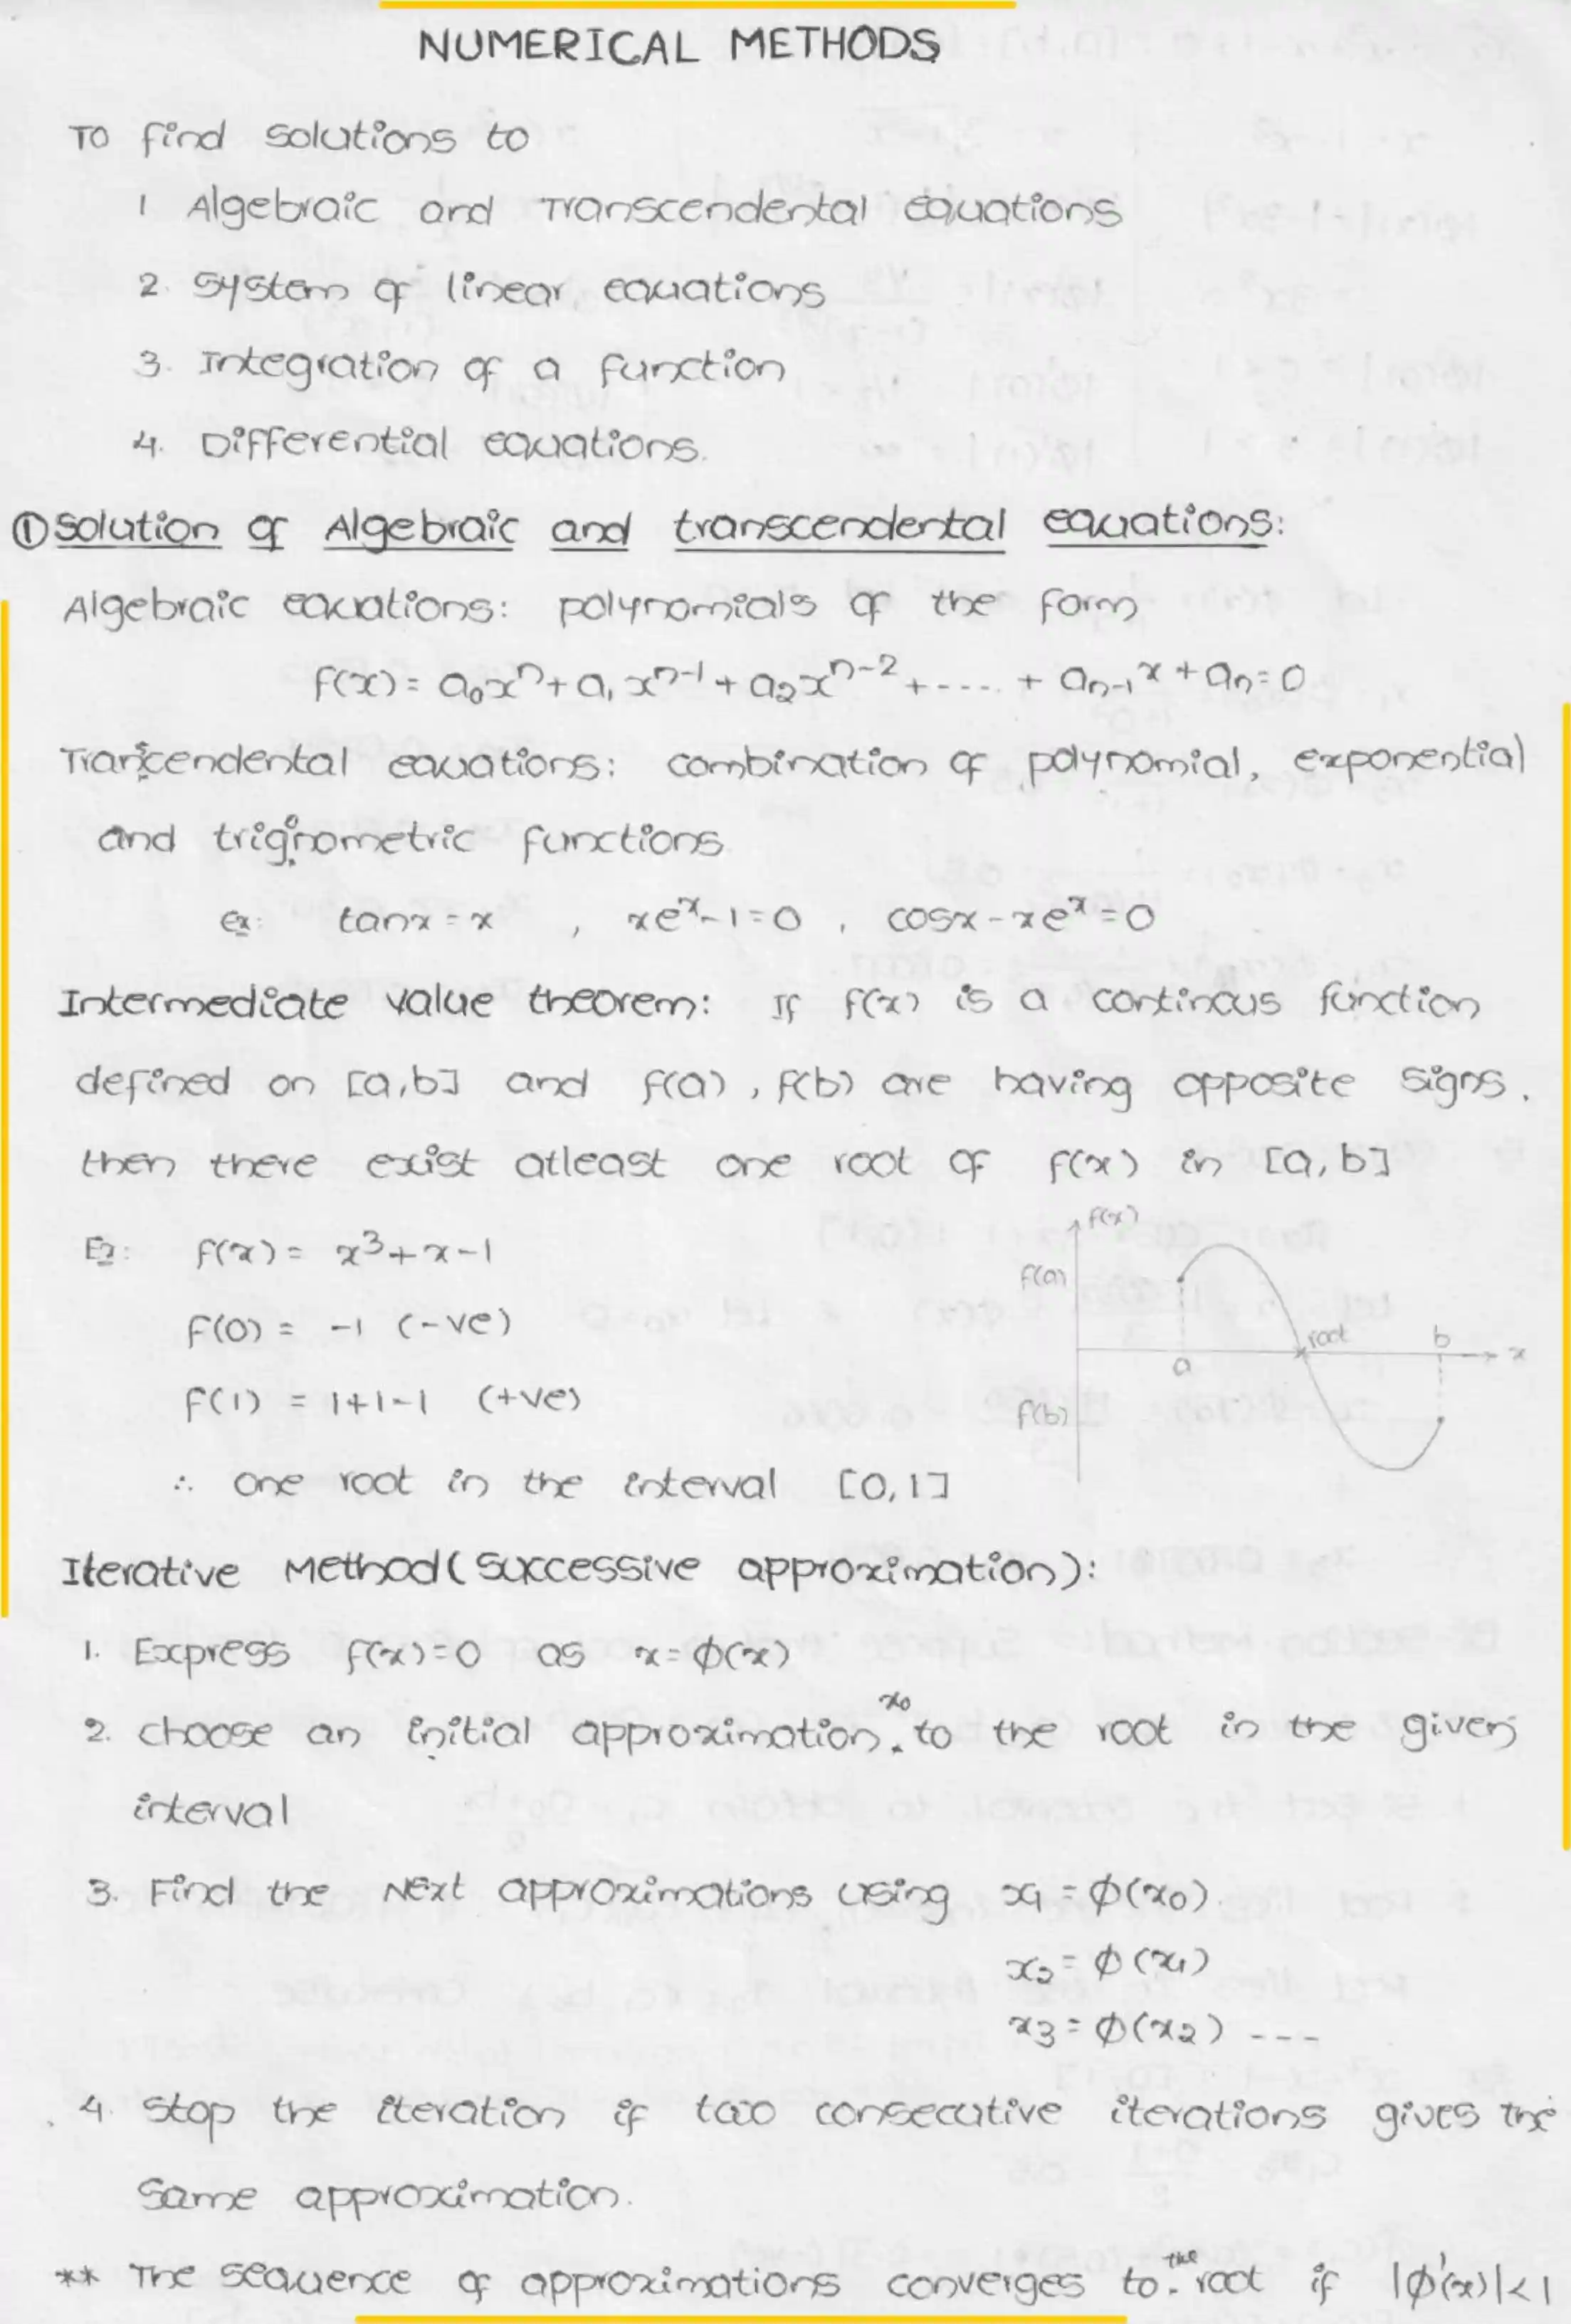 NUMERICAL METHODS
To find solutions to
1 Algebraic and Transcendental equations
2. System of linear equations
3. Integration of a function
4. Differential equations.
① Solution of Algebraic and transcendental equations:
Algebraic equations: polynomials of the form
f(x) = a₀xⁿ + a₁xⁿ⁻¹ + a₂xⁿ⁻² + ---- + aₙ₋₁x + aₙ = 0
Transcendental equations: combination of polynomial, exponential
and trignometric functions
Ex: tanx = x , xeˣ - 1 = 0 , cosx - xeˣ = 0
Intermediate value theorem: If f(x) is a continous function
defined on [a,b] and f(a), f(b) are having opposite signs.
then there exist atleast one root of f(x) in [a,b]
Ex: f(x) = x³ + x - 1
f(0) = -1 (-ve)
f(1) = 1+1-1 (+ve)
∴ one root in the interval [0,1]
f(x)
f(a)
root
b
x
a
f(b)
Iterative Method (Successive approximation):
1. Express f(x)=0 as x = ϕ(x)
2. choose an initial approximation x₀ to the root in the given
interval
3. Find the Next approximations using x₁ = ϕ(x₀).
x₂ = ϕ(x₁)
x₃ = ϕ(x₂) ---
4. Stop the iteration if two consecutive iterations gives the
Same approximation.
** The sequence of approximations converges to the root if |ϕ'(x)| < 1